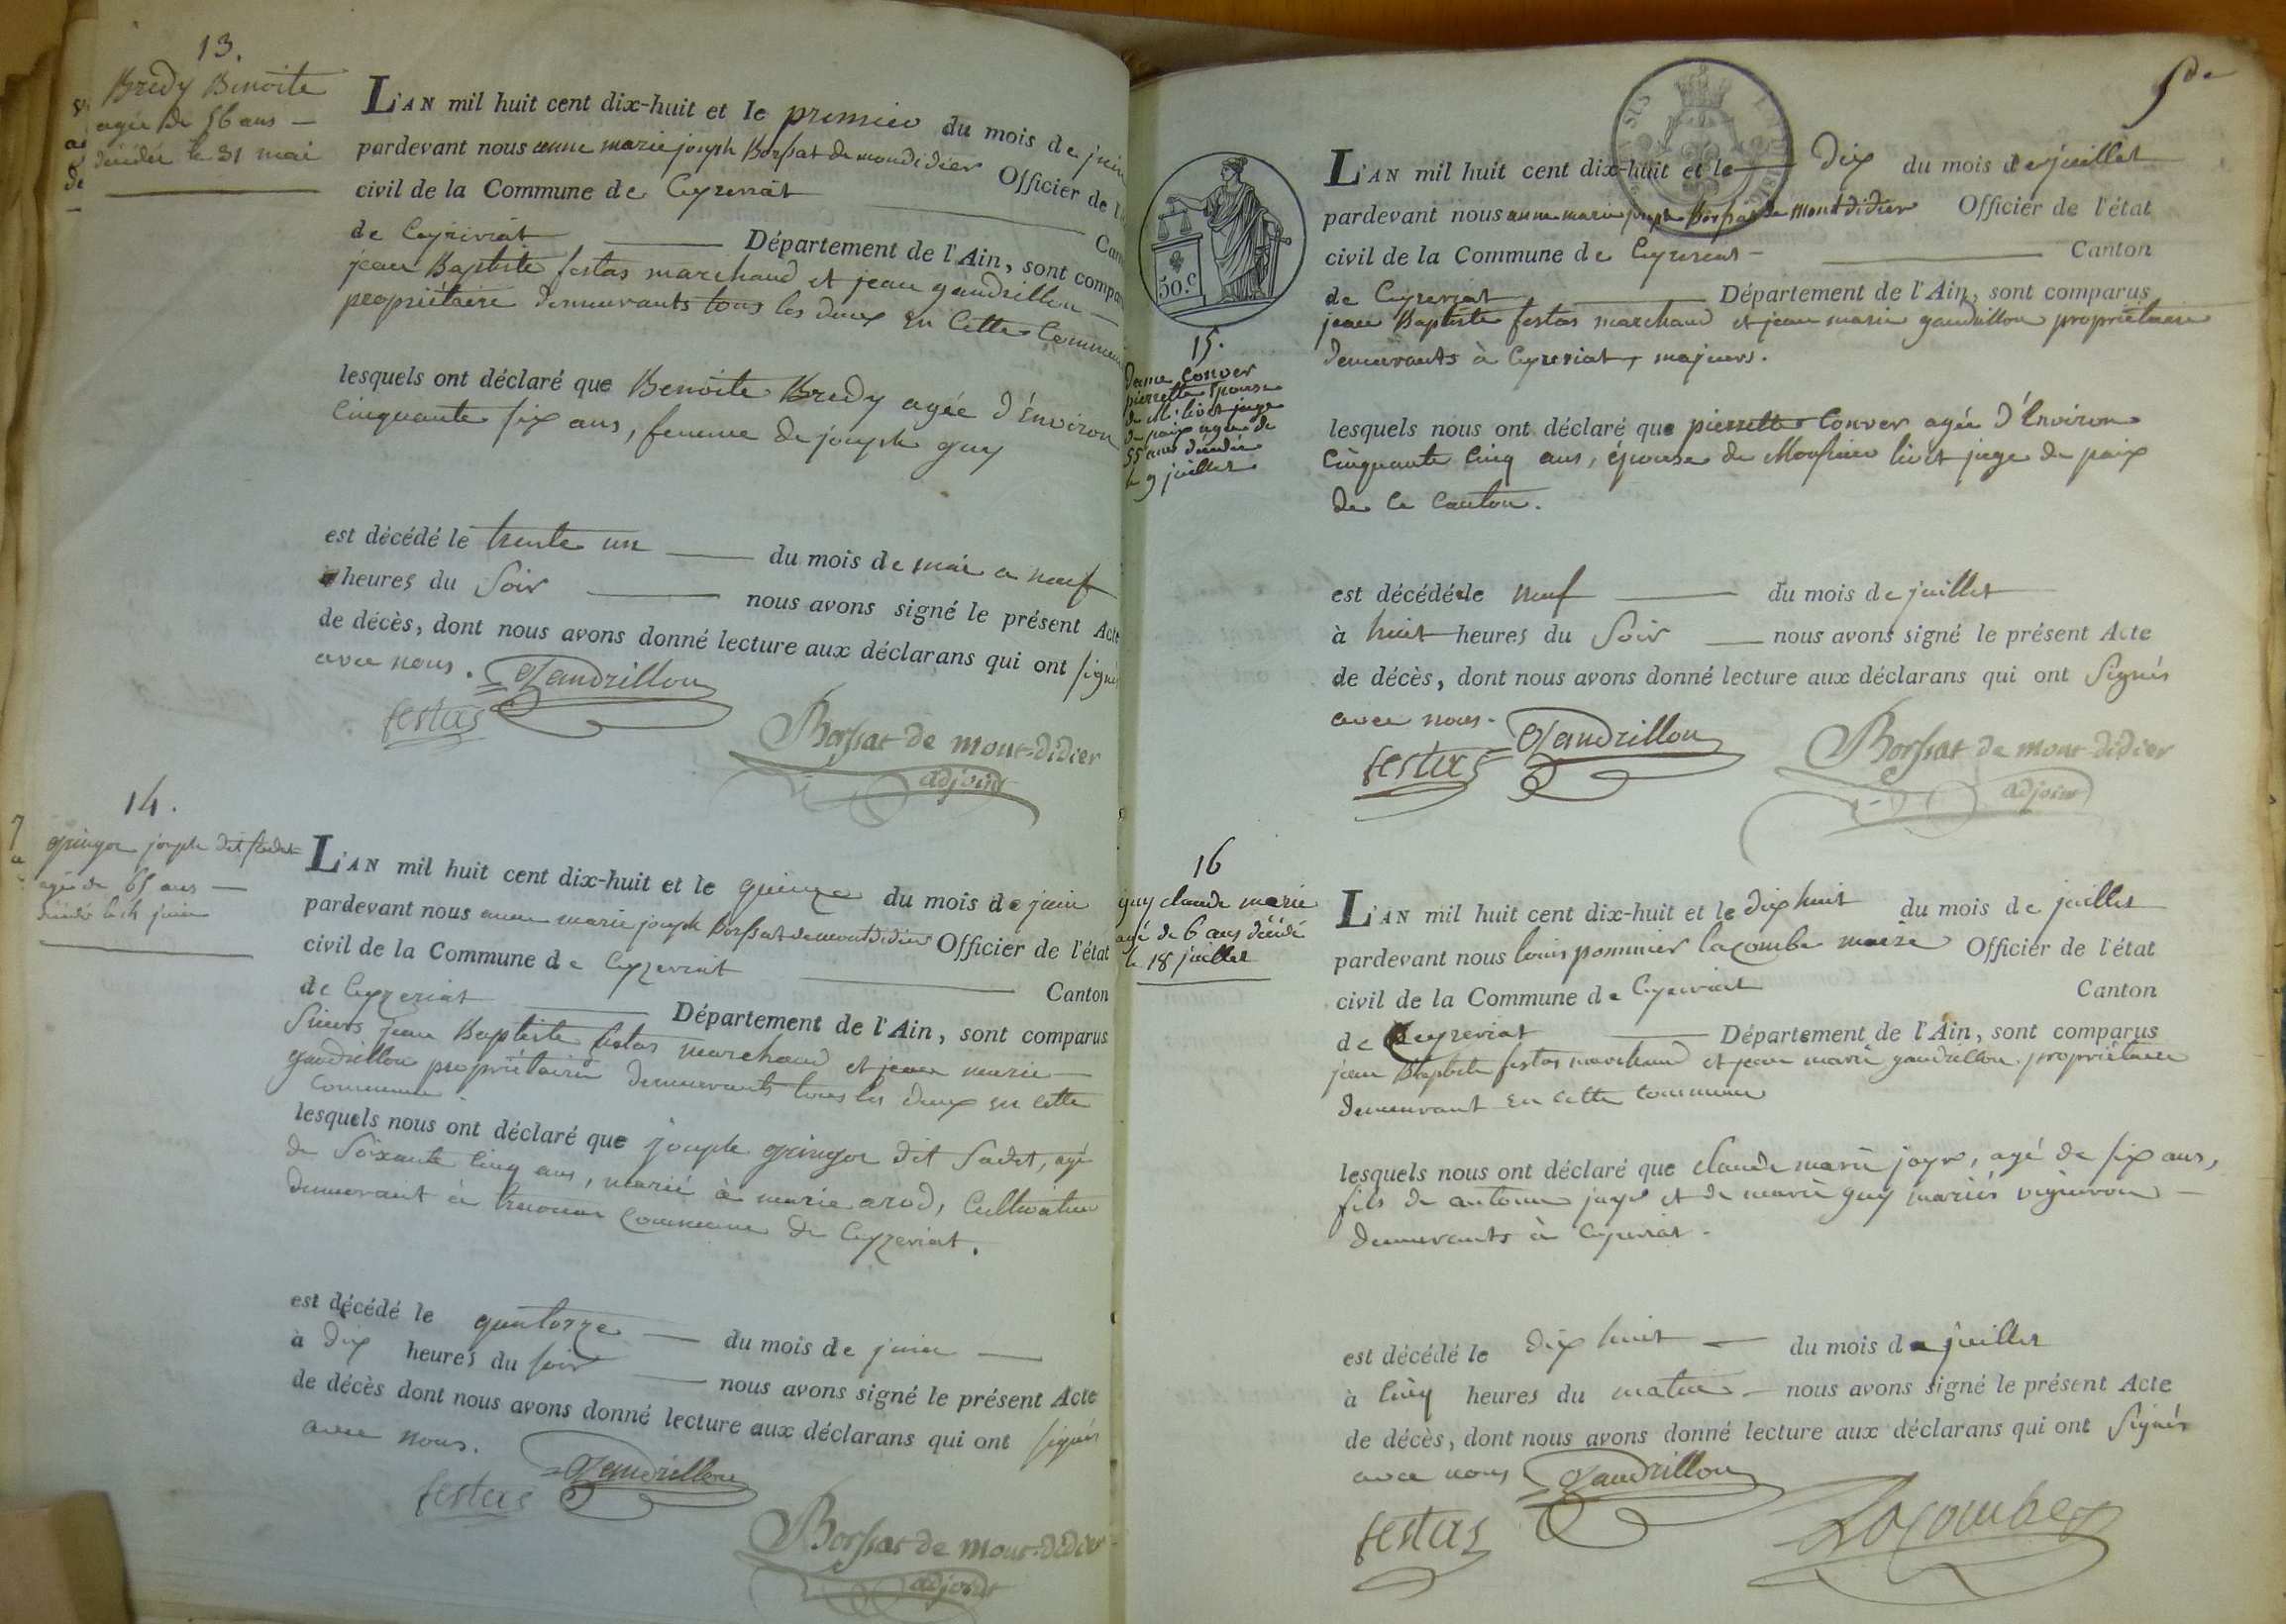 13.
Bredy Benoite
agée de 56 ans —
décédée le 31 mai
L'AN mil huit cent dix-huit et le premier du mois de juin
pardevant nous anne marie joseph Borssat de mondidier Officier de l'
civil de la Commune de Ceyzeriat
de Ceyzeriat Département de l'Ain, sont compar
jean Baptiste festas marchand et jean gandrillon —
propriétaire demeurants tous les deux en Cette Commune
lesquels ont déclaré que Benoite Bredy agée d'Environ
Cinquante six ans, femme de joseph guy
est décédé le trente un — du mois de mai a neuf
heures du Soir — nous avons signé le présent Acte
de décès, dont nous avons donné lecture aux déclarans qui ont signés
avec nous. Gandrillon
festas
Borssat de mont-didier
adjoint
14.
gringoz joseph dit
agé de 65 ans —
décédé le 14 juin
L'AN mil huit cent dix-huit et le quinze du mois de juin
pardevant nous anne marie joseph Borssat de montdidier Officier de l'état
civil de la Commune de Ceyzeriat
Canton
de Ceyzeriat Département de l'Ain, sont comparus
Sieurs jean Baptiste festas marchand et jean marie —
gandrillon propriétaire demeurants tous les deux en cette
Commune.
lesquels nous ont déclaré que joseph gringoz dit Sadet, agé
de Soixante Cinq ans, marié à marie arod, Cultivateur
demeurant à commune de Ceyzeriat.
est décédé le quatorze — du mois de juin —
à dix heures du soir — nous avons signé le présent Acte
de décès dont nous avons donné lecture aux déclarans qui ont signés
avec nous. Gandrillon
festas
Borssat de mont-didier
adjoint
50.c
15.
Dame Conver
pierrette Epouse
de M. livet juge
de paix agée de
55 ans décédée
le 9 juillet
L'AN mil huit cent dix-huit et le — Dix du mois de juillet
pardevant nous anne marie joseph Borssat de Mont didier Officier de l'état
civil de la Commune de Ceyzeriat — Canton
de Ceyzeriat Département de l'Ain, sont comparus
jean Baptiste festas marchand et jean marie gandrillon propriétaire
demeurants à Ceyzeriat, majeurs.
lesquels nous ont déclaré que pierrette Conver agée d'Environ
Cinquante Cinq ans, épouse de Monsieur livet juge de paix
de Ce Canton.
est décédée le neuf — du mois de juillet
à huit heures du Soir — nous avons signé le présent Acte
de décès, dont nous avons donné lecture aux déclarans qui ont Signés
avec nous. Gandrillon
festas
Borssat de mont-didier
adjoint
16
guy claude marie
agé de 6 ans décédé
le 18 juillet
L'AN mil huit cent dix-huit et le dix huit du mois de juillet
pardevant nous louis pommier lacombe maire Officier de l'état
civil de la Commune de Ceyzeriat Canton
de Ceyzeriat — Département de l'Ain, sont comparus
jean Baptiste festas marchand et jean marie gandrillon propriétaire
demeurant en cette commune
lesquels nous ont déclaré que claude marie joyr, agé de six ans,
fils de antoine joyr et de marie guy mariés vigneron —
demeurants à Ceyzeriat.
est décédé le dix huit — du mois de juillet
à Cinq heures du matin — nous avons signé le présent Acte
de décès, dont nous avons donné lecture aux déclarans qui ont Signés
avec nous Gandrillon
festas
Lacombe